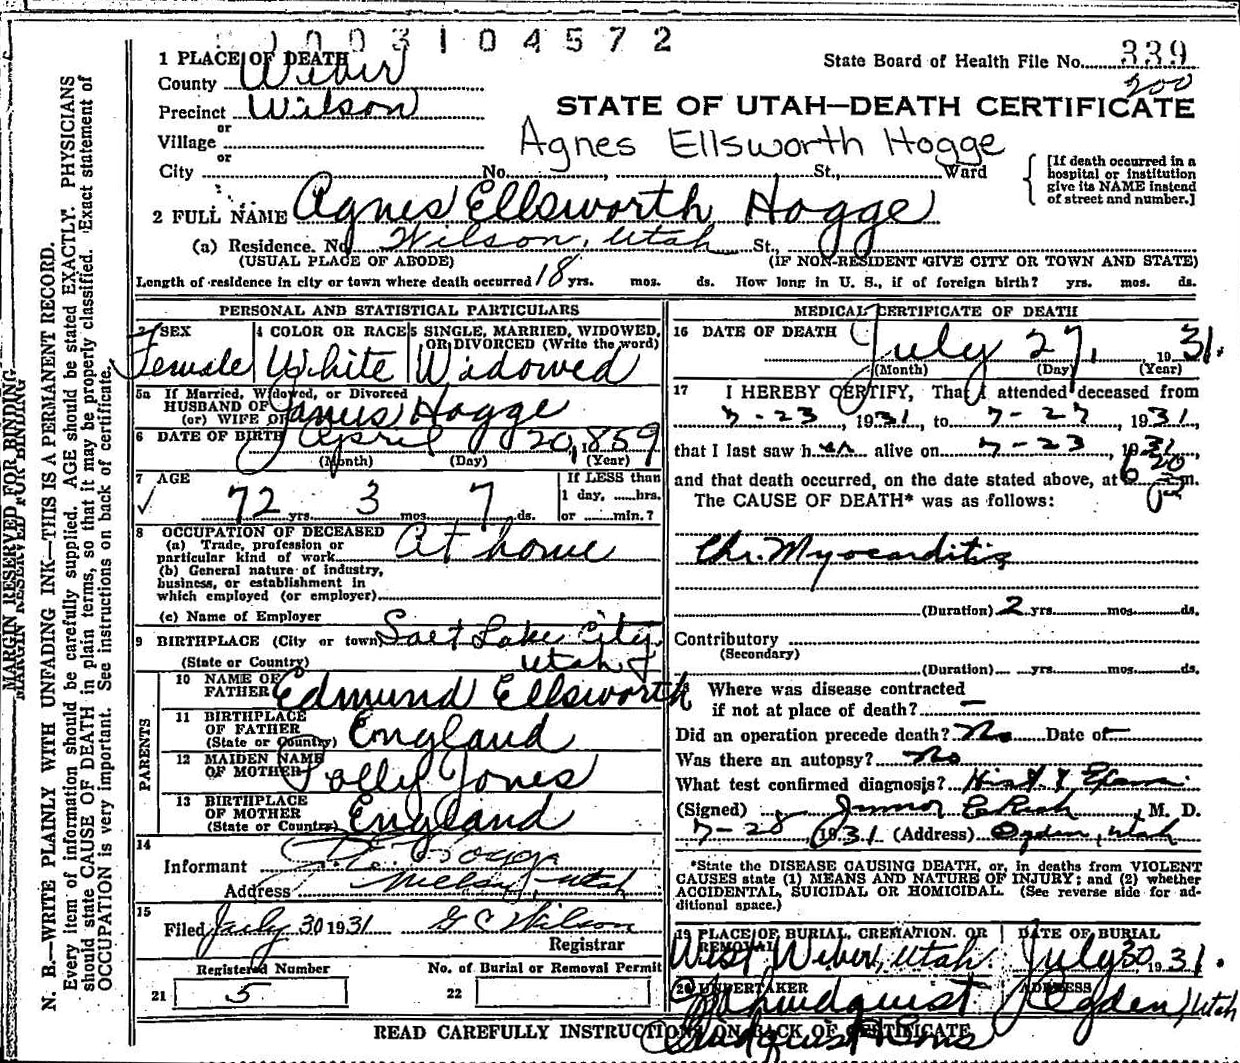 1003104572
1 PLACE OF DEATH
State Board of Health File No. 339
County Weber
200
Precinct Wilson
STATE OF UTAH—DEATH CERTIFICATE
or
Village
Agnes Ellsworth Hogge
or
City No. , St., Ward
[If death occurred in a hospital or institution give its NAME instead of street and number.]
2 FULL NAME Agnes Ellsworth Hogge
(a) Residence. No. Wilson, Utah St.,
(USUAL PLACE OF ABODE) (IF NON-RESIDENT GIVE CITY OR TOWN AND STATE)
Length of residence in city or town where death occurred 18 yrs. mos. ds. How long in U. S., if of foreign birth? yrs. mos. ds.
PERSONAL AND STATISTICAL PARTICULARS
3 SEX
Female
4 COLOR OR RACE
White
5 SINGLE, MARRIED, WIDOWED, OR DIVORCED (Write the word)
Widowed
5a If Married, Widowed, or Divorced
HUSBAND OF
(or) WIFE OF James Hogge
6 DATE OF BIRTH April 20, 1859
(Month) (Day) (Year)
7 AGE
If LESS than
1 day, ......hrs.
or ......min.?
72 yrs. 3 mos. 7 ds.
8 OCCUPATION OF DECEASED
(a) Trade, profession or
particular kind of work At home
(b) General nature of industry,
business, or establishment in
which employed (or employer)
(c) Name of Employer
9 BIRTHPLACE (City or town) Salt Lake City
(State or Country) Utah
PARENTS
10 NAME OF
FATHER Edmund Ellsworth
11 BIRTHPLACE
OF FATHER England
(State or Country)
12 MAIDEN NAME
OF MOTHER Polly Jones
13 BIRTHPLACE
OF MOTHER England
(State or Country)
14
Informant Hogge
Address Utah
15
Filed July 30 1931 G C Wilson
Registrar
Registered Number
No. of Burial or Removal Permit
21 5
22
MEDICAL CERTIFICATE OF DEATH
16 DATE OF DEATH July 27, 1931.
(Month) (Day) (Year)
17 I HEREBY CERTIFY, That I attended deceased from
7-23, 1931, to 7-27, 1931.
that I last saw her alive on 7-23, 1931
and that death occurred, on the date stated above, at 6 20 m.
The CAUSE OF DEATH* was as follows:
Chr. Myocarditis
(Duration) 2 yrs. mos. ds.
Contributory
(Secondary)
(Duration) yrs. mos. ds.
Where was disease contracted
if not at place of death? —
Did an operation precede death? No Date of —
Was there an autopsy? No
What test confirmed diagnosis? Hist. &
(Signed) Junior E Rich, M. D.
7-28, 1931 (Address) Ogden, Utah
*State the DISEASE CAUSING DEATH, or, in deaths from VIOLENT
CAUSES state (1) MEANS AND NATURE OF INJURY; and (2) whether
ACCIDENTAL, SUICIDAL OR HOMICIDAL. (See reverse side for ad-
ditional space.)
19 PLACE OF BURIAL, CREMATION, OR
REMOVAL
West Weber, Utah.
DATE OF BURIAL
July 30, 1931.
20 UNDERTAKER
Lindquist
ADDRESS
Ogden, Utah
Lindquist & Sons
READ CAREFULLY INSTRUCTIONS ON BACK OF CERTIFICATE
MARGIN RESERVED FOR BINDING
MARGIN RESERVED FOR BINDING
N. B.—WRITE PLAINLY WITH UNFADING INK—THIS IS A PERMANENT RECORD.
Every item of information should be carefully supplied. AGE should be stated EXACTLY. PHYSICIANS
should state CAUSE OF DEATH in plain terms, so that it may be properly classified. Exact statement of
OCCUPATION is very important. See instructions on back of certificate.